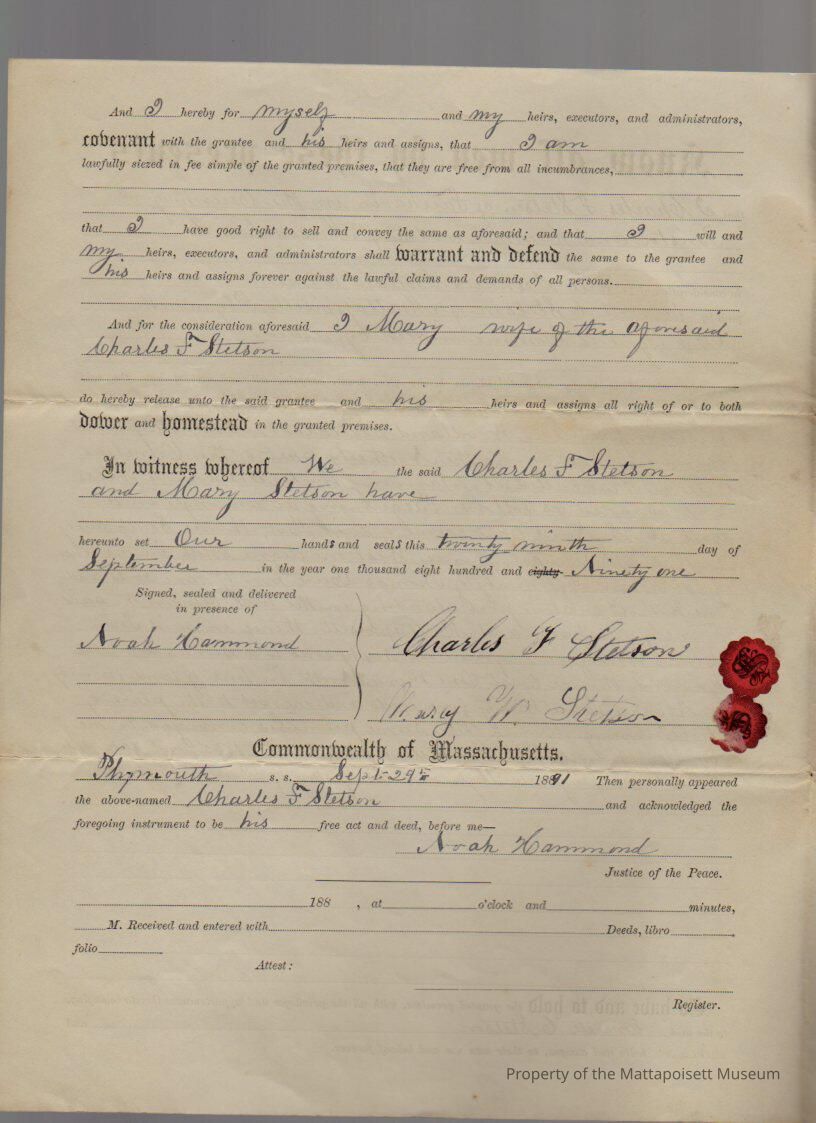 And I hereby for myself and my heirs, executors, and administrators,
covenant with the grantee and his heirs and assigns, that I am
lawfully siezed in fee simple of the granted premises, that they are free from all incumbrances,
that I have good right to sell and convey the same as aforesaid; and that I will and
my heirs, executors, and administrators shall warrant and defend the same to the grantee and
his heirs and assigns forever against the lawful claims and demands of all persons.
And for the consideration aforesaid I Mary wife of the aforesaid
Charles F Stetson
do hereby release unto the said grantee and his heirs and assigns all right of or to both
dower and homestead in the granted premises.
In witness whereof We the said Charles F Stetson
and Mary Stetson have
hereunto set Our hands and seals this twenty ninth day of
September in the year one thousand eight hundred and eighty Ninety one
Signed, sealed and delivered
in presence of
Noah Hammond
Charles F Stetson
Mary W. Stetson
Commonwealth of Massachusetts.
Plymouth s. s. Sept 29th 1891 Then personally appeared
the above-named Charles F Stetson and acknowledged the
foregoing instrument to be his free act and deed, before me—
Noah Hammond
Justice of the Peace.
188 , at o'clock and minutes,
M. Received and entered with Deeds, libro
folio
Attest:
Register.
Property of the Mattapoisett Museum